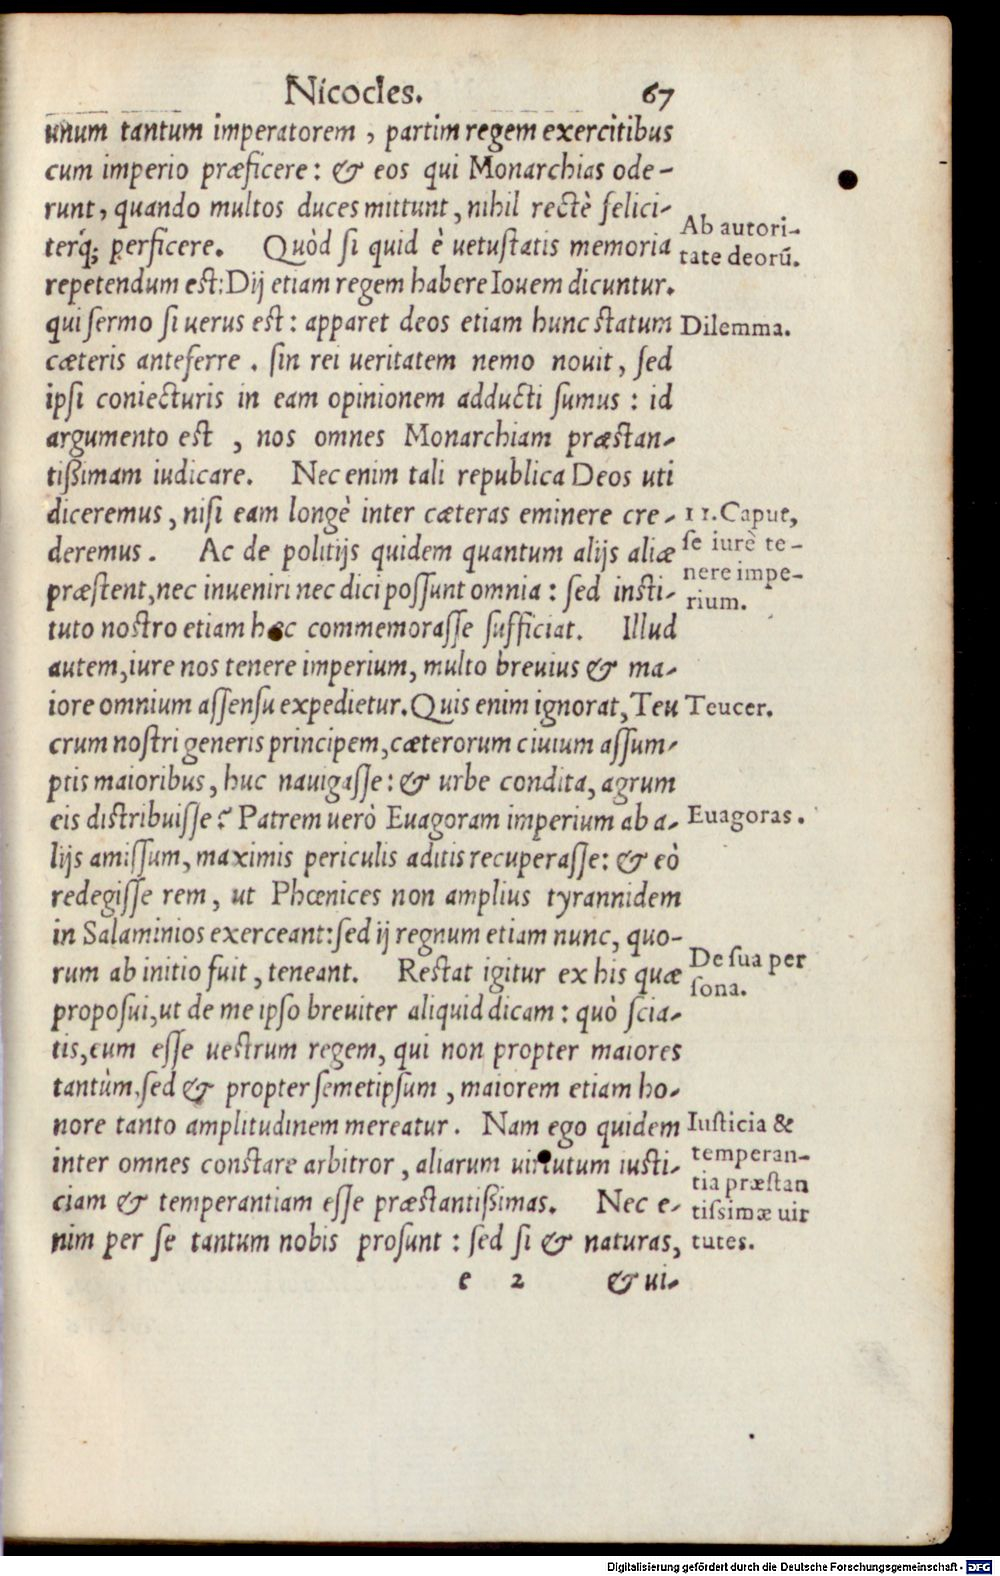 Nicocles. 67
unum tantum imperatorem, partim regem exercitibus
cum imperio præficere: & eos qui Monarchias ode-
runt, quando multos duces mittunt, nihil rectè felici-
terq́; perficere. Quòd ſi quid è uetuſtatis memoria
repetendum est: Dij etiam regem habere Iouem dicuntur.
qui ſermo ſi uerus est: apparet deos etiam hunc statum
cæteris anteferre. ſin rei ueritatem nemo nouit, ſed
ipſi coniecturis in eam opinionem adducti ſumus: id
argumento est, nos omnes Monarchiam præstan-
tißimam iudicare. Nec enim tali republica Deos uti
diceremus, niſi eam longè inter cæteras eminere cre-
deremus. Ac de politijs quidem quantum alijs aliæ
præſtent, nec inueniri nec dici poſſunt omnia: ſed insti-
tuto nostro etiam hæc commemoraſſe ſufficiat. Illud
autem, iure nos tenere imperium, multo breuius & ma-
iore omnium aſſenſu expedietur. Quis enim ignorat, Teu
crum nostri generis principem, cæterorum ciuium aſſum-
ptis maioribus, huc nauigaſſe: & urbe condita, agrum
eis distribuiſſe? Patrem uerò Euagoram imperium ab a-
lijs amiſſum, maximis periculis aditis recuperaſſe: & eò
redegiſſe rem, ut Phœnices non amplius tyrannidem
in Salaminios exerceant: ſed ij regnum etiam nunc, quo-
rum ab initio fuit, teneant. Restat igitur ex his quæ
propoſui, ut de me ipſo breuiter aliquid dicam: quò ſcia-
tis, eum eſſe uestrum regem, qui non propter maiores
tantùm, ſed & propter ſemetipſum, maiorem etiam ho-
nore tanto amplitudinem mereatur. Nam ego quidem
inter omnes constare arbitror, aliarum uirtutum iusti-
ciam & temperantiam eſſe præstantißimas. Nec e-
nim per ſe tantum nobis proſunt: ſed ſi & naturas,
e 2 & ui-
Ab autori-
tate deorũ.
Dilemma.
11. Caput,
ſe iurè te-
nere impe-
rium.
Teucer.
Euagoras.
De ſua per
ſona.
Iuſticia &
temperan-
tia præſtan
tiſsimæ uir
tutes.
Digitalisierung gefördert durch die Deutsche Forschungsgemeinschaft - DFG